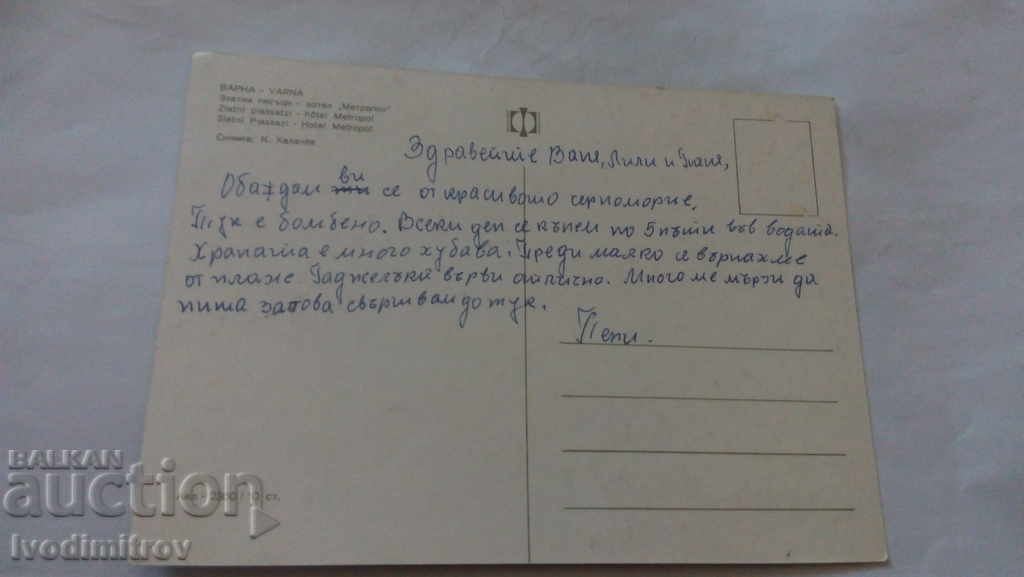 ВАРНА - VARNA
Златни пясъци - хотел „Метропол"
Zlatni piassatzi - hôtel Metropol
Slatni Pjassazi - Hotel Metropol
Снимка: К.
Здравейте Ваня, Лили и
Обаждам ви се от красивото черноморие,
Тук е бомбено. Всеки ден се къпем по 5 пъти във водата.
Храната е много хубава. Преди малко се върнахме
от плаж. Гаджелъка върви отлично. Много ме мързи да
пиша затова свършвам до тук.
Пепи.
10 ст.
BALKAN
auction
Ivodimitrov